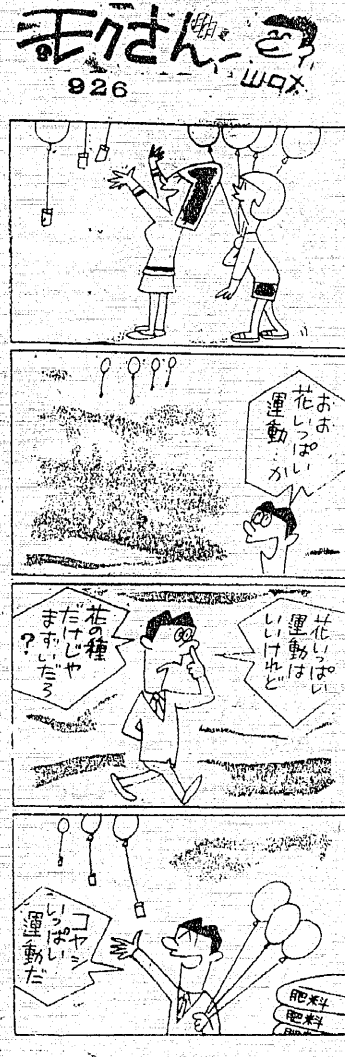 モクさん
926
おお
花いっぱい
運動か
花いっぱい
運動は
いいけれど
花の種
だけじゃ
まずいだろ
？
コヤシ
いっぱい
運動だ
肥料
肥料